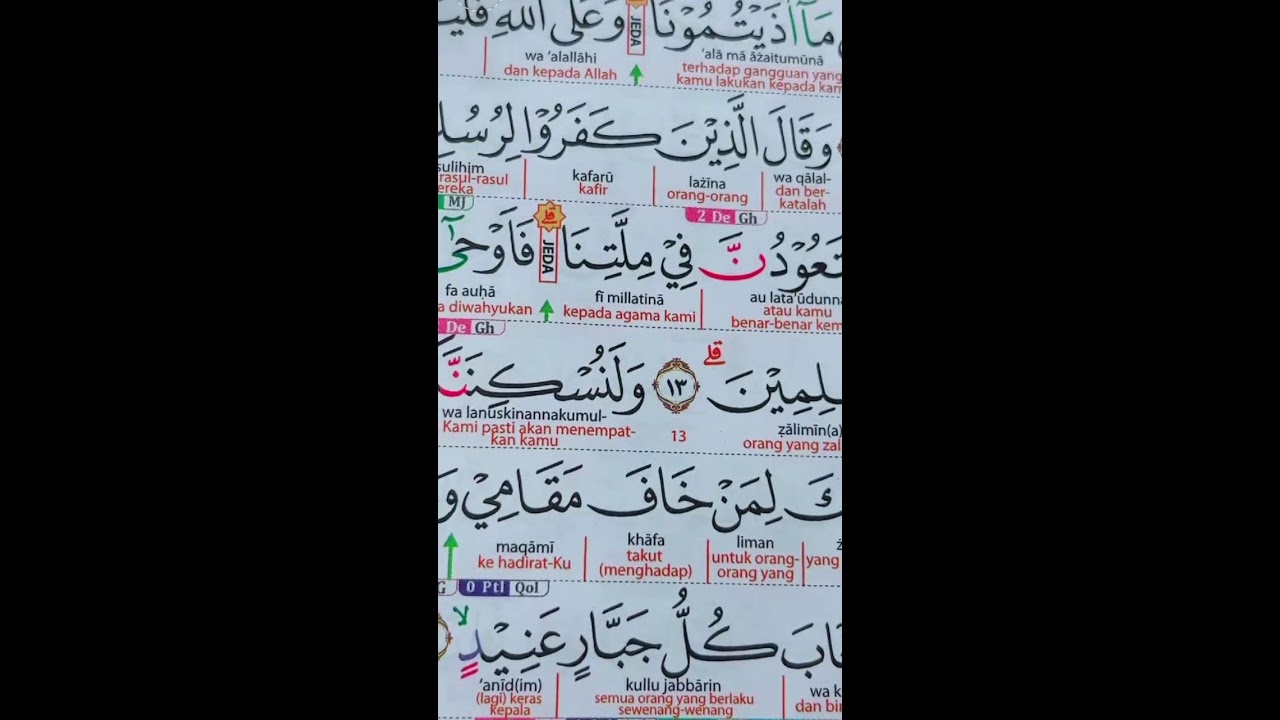 مَآ اٰذَيْتُمُوْنَا ۗ وَعَلَى اللّٰهِ
JEDA
'alā mā āżaitumūnā wa 'alallāhi
terhadap gangguan yang kamu lakukan kepada dan kepada Allah
وَقَالَ الَّذِيْنَ كَفَرُوْا
wa qālal- lażīna kafarū sulihim
dan ber-katalah orang-orang kafir rasul-rasul
MJ 2 De Gh
تَعُوْدُنَّ فِيْ مِلَّتِنَا ۗ فَاَوْحٰٓى
JEDA
au lata'ūdunna fī millatinā fa auḥā
atau kamu benar-benar kepada agama kami diwahyukan
De Gh
لِمِيْنَ ۙ ١٣ وَلَنُسْكِنَنَّ
ẓālimīn(a) wa lanuskinannakumul-
orang yang 13 Kami pasti akan menempat-kan kamu
لِمَنْ خَافَ مَقَامِيْ
liman khāfa maqāmī
yang untuk orang-orang yang takut (menghadap) ke hadirat-Ku
G 0 Ptl Qol
كُلُّ جَبَّارٍ عَنِيْدٍ ۙ
wa kullu jabbārin 'anīd(im)
dan semua orang yang berlaku sewenang-wenang (lagi) keras kepala